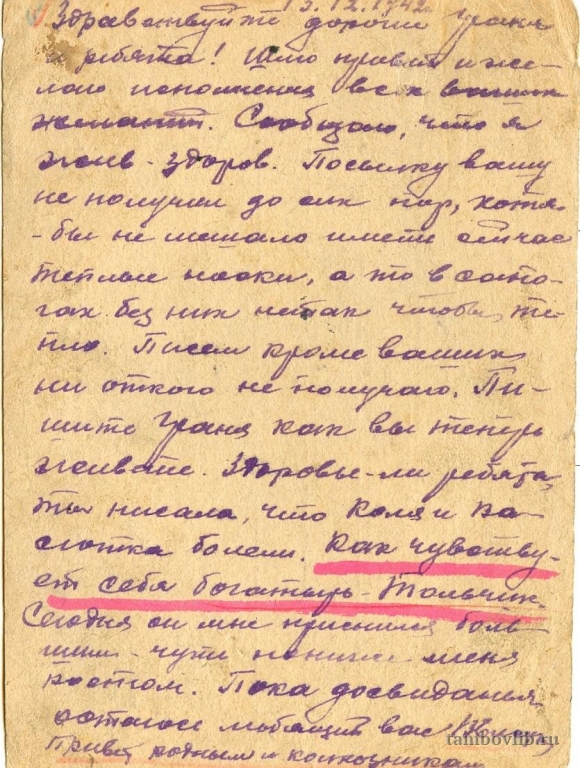 13.12.1942
Здравствуйте дорогие Граня
и ребята! Шлю привет и же-
лаю исполнения всех ваших
желаний. Сообщаю, что я
жив-здоров. Посылку вашу
не получил до сих пор, хотя-
-бы не мешало иметь сейчас
теплые носки, а то в сапо-
гах без них не так чтобы те-
пло. Писем кроме ваших
ни от кого не получаю. Пи-
шите Граня как вы теперь
живете. Здоровы-ли ребята,
ты писала, что Коля и
болели. Как чувству-
ет себя богатырь-Тольчик.
Сегодня он мне приснился боль-
шим-чуть пониже меня
ростом. Пока досвиданья
остаюсь любящий вас
Привет родным и колхозникам
tambovlib.ru